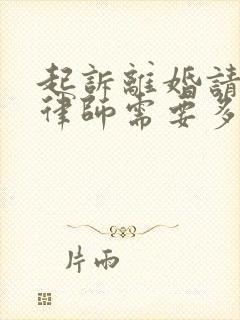 起訴離婚請
律師需要多
片雨